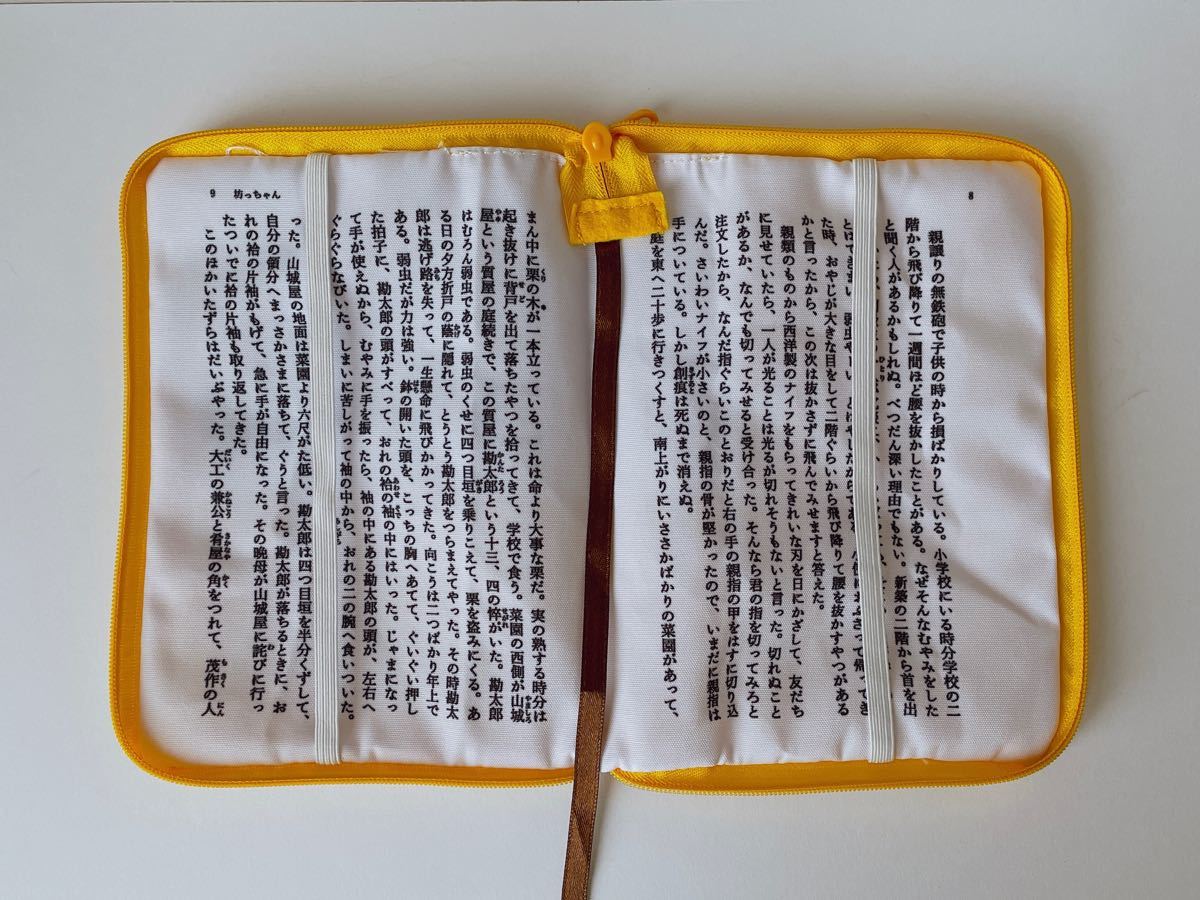 8
親譲りの無鉄砲で子供の時から損ばかりしている。小学校にいる時分学校の二
階から飛び降りて一週間ほど腰を抜かしたことがある。なぜそんなむやみをした
と聞く人があるかもしれぬ。べつだん深い理由でもない。新築の二階から首を出
とはできまい。弱虫やーい。とはやしたからである。小使におぶさって帰ってき
た時、おやじが大きな目をして二階ぐらいから飛び降りて腰を抜かすやつがある
かと言ったから、この次は抜かさずに飛んでみせますと答えた。
親類のものから西洋製のナイフをもらってきれいな刃を日にかざして、友だち
に見せていたら、一人が光ることは光るが切れそうもないと言った。切れぬこと
があるか、なんでも切ってみせると受け合った。そんなら君の指を切ってみろと
注文したから、なんだ指ぐらいこのとおりだと右の手の親指の甲をはすに切り込
んだ。さいわいナイフが小さいのと、親指の骨が堅かったので、いまだに親指は
手についている。しかし創痕は死ぬまで消えぬ。
庭を東へ二十歩に行きつくすと、南上がりにいささかばかりの菜園があって、
9 坊っちゃん
まん中に栗の木が一本立っている。これは命より大事な栗だ。実の熟する時分は
起き抜けに背戸を出て落ちたやつを拾ってきて、学校で食う。菜園の西側が山城
屋という質屋の庭続きで、この質屋に勘太郎という十三、四の悴がいた。勘太郎
はむろん弱虫である。弱虫のくせに四つ目垣を乗りこえて、栗を盗みにくる。あ
る日の夕方折戸の蔭に隠れて、とうとう勘太郎をつらまえてやった。その時勘太
郎は逃げ路を失って、一生懸命に飛びかかってきた。向こうは二つばかり年上で
ある。弱虫だが力は強い。鉢の開いた頭を、こっちの胸へあてて、ぐいぐい押し
た拍子に、勘太郎の頭がすべって、おれの袷の袖の中にはいった。じゃまになっ
て手が使えぬから、むやみに手を振ったら、袖の中にある勘太郎の頭が、左右へ
ぐらぐらなびいた。しまいに苦しがって袖の中から、おれの二の腕へ食いついた。
った。山城屋の地面は菜園より六尺がた低い。勘太郎は四つ目垣を半分くずして、
自分の領分へまっさかさまに落ちて、ぐうと言った。勘太郎が落ちるときに、お
れの袷の片袖がもげて、急に手が自由になった。その晩母が山城屋に詫びに行っ
たついでに袷の片袖も取り返してきた。
このほかいたずらはだいぶやった。大工の兼公と肴屋の角をつれて、茂作の人